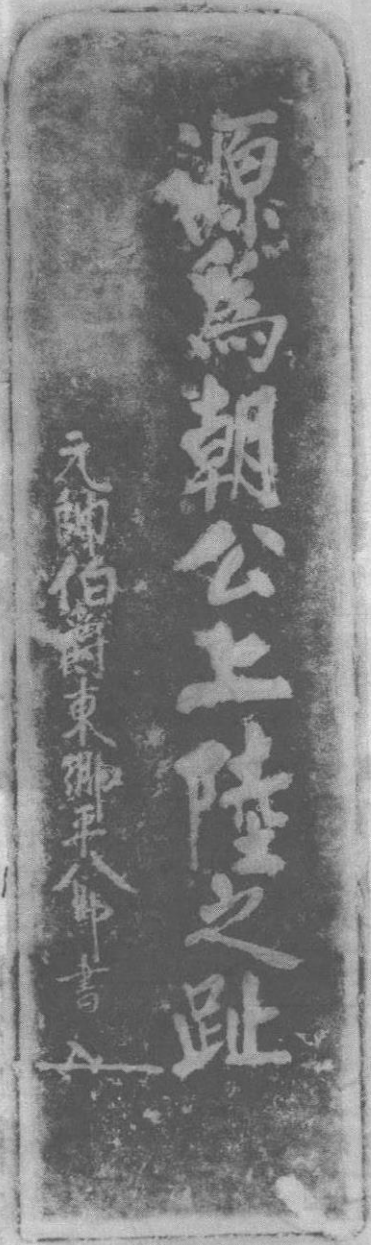 源為朝公上陸之趾
元帥伯爵東郷平八郎書